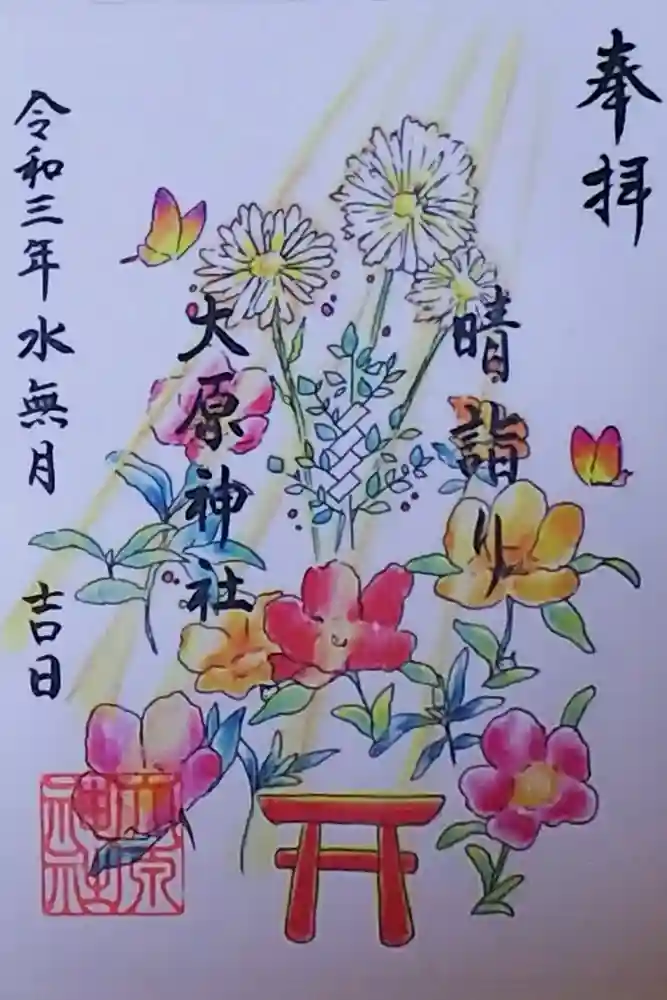 奉拝
晴詣り
大原神社
令和三年水無月 吉日
大原神社